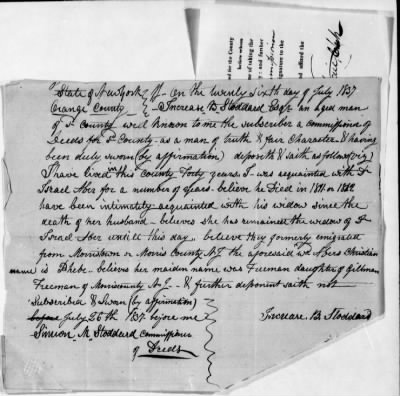 for the County
before whom
of taking the
; and further
signature to the
and affixed the
State of New York } ss. On the twenty Sixth day of July 1837
Orange County } Increase B. Stoddard Esqr. an aged man
of Sd. County well known to me the subscriber a commissioner of
Deeds for Sd. County - as a man of truth & fair Character - & having
been duly sworn (by affirmation) deposeth & saith as follows (viz)
I have lived this County Forty years. I was acquainted with Sd.
Israel Aber for a number of years - believe he Died in 1811 or 1812
have been intimately acquainted with his widow since the
death of her husband - believes she has remained the widow of Sd
Israel Aber untill this day - believe they formerly emigrated
from Morristown or Morris County N.J. the aforesaid Wd. Abers Christian
name is Phebe - believes her maiden name was Freeman daughter of
Freeman of Morris County N.J. - & further deponent saith not
Subscribed & Sworn (by affirmation)
before July 26th 1837 before me
Simeon M. Stoddard Commissioner
of Deeds
Increase B. Stoddard